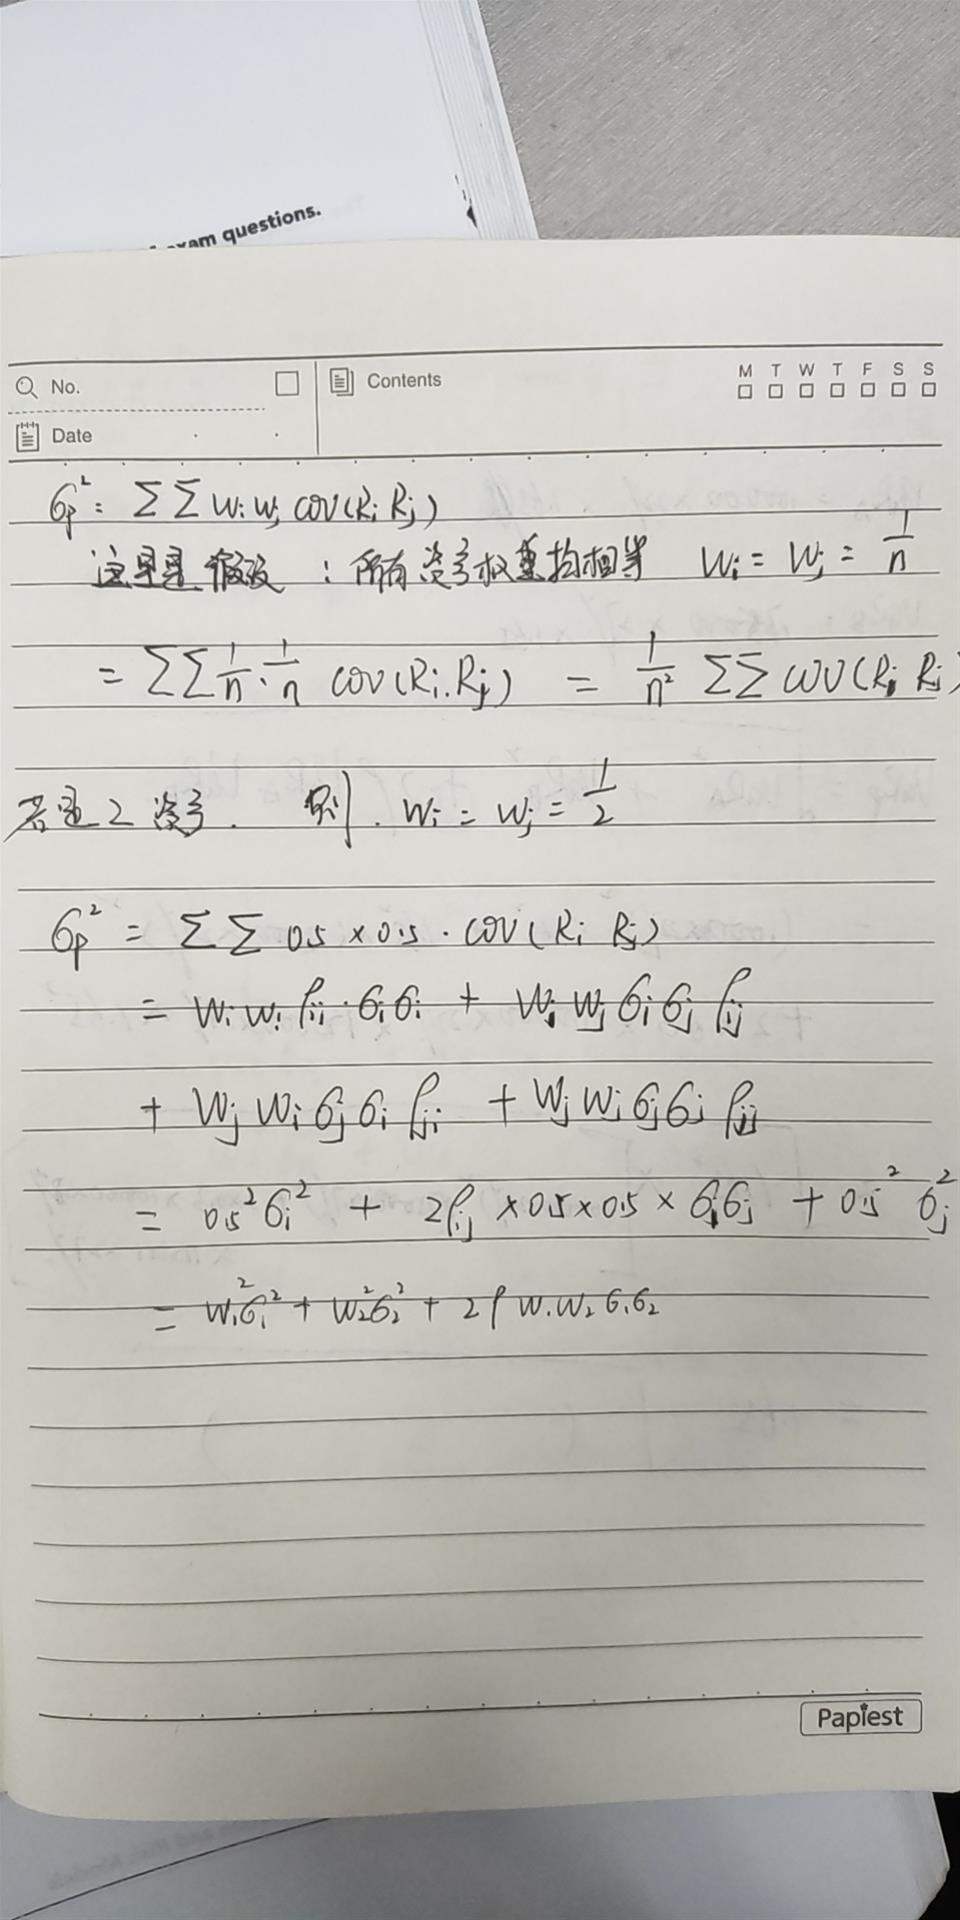 exam questions.
No.
Contents
M T W T F S S
Date
σp²: ΣΣ wi wj cov(Ri Rj)
这里是假设：所有资产权重均相等 wi = wj = 1/n
= ΣΣ 1/n · 1/n cov(Ri.Rj) = 1/n² ΣΣ cov(Ri Rj)
若是2资产. 则. wi = wj = 1/2
σp² = ΣΣ 0.5 × 0.5 · cov(Ri Rj)
= wi wi ρii · σi σi + wi wj σi σj ρij
+ wj wi σj σi ρji + wj wj σj σj ρjj
= 0.5² σi² + 2ρij × 0.5 × 0.5 × σiσj + 0.5² σj²
= w₁²σ₁² + w₂²σ₂² + 2ρ w₁w₂ σ₁σ₂
Papiest